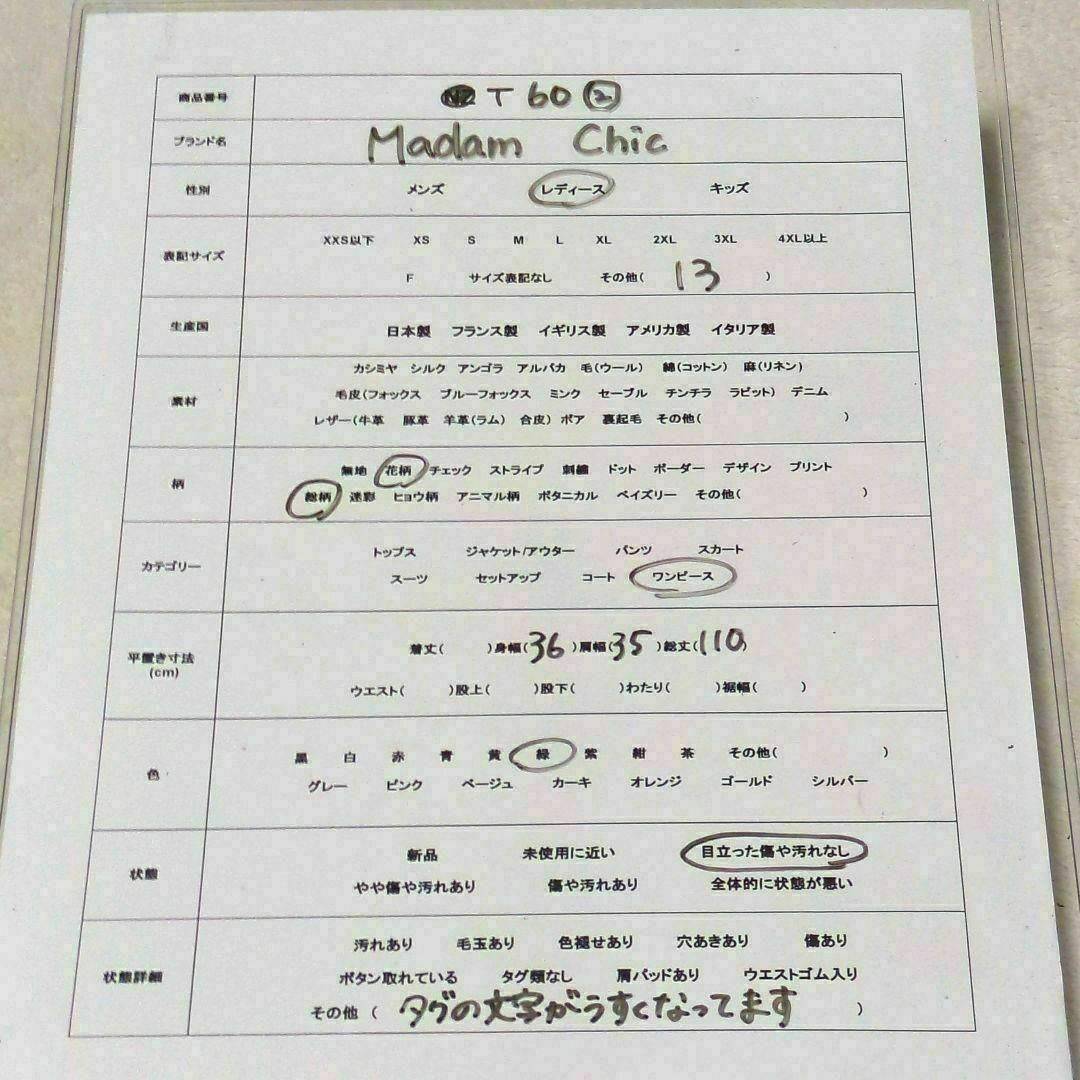 商品番号 T 60 ②
ブランド名 Madam Chic
性別 メンズ レディース キッズ
表記サイズ
XXS以下 XS S M L XL 2XL 3XL 4XL以上
F サイズ表記なし その他( 13 )
生産国 日本製 フランス製 イギリス製 アメリカ製 イタリア製
素材
カシミヤ シルク アンゴラ アルパカ 毛(ウール) 綿(コットン) 麻(リネン)
毛皮(フォックス ブルーフォックス ミンク セーブル チンチラ ラビット) デニム
レザー(牛革 豚革 羊革(ラム) 合皮) ボア 裏起毛 その他( )
柄
無地 花柄 チェック ストライプ 刺繍 ドット ボーダー デザイン プリント
総柄 迷彩 ヒョウ柄 アニマル柄 ボタニカル ペイズリー その他( )
カテゴリー
トップス ジャケット/アウター パンツ スカート
スーツ セットアップ コート ワンピース
平置き寸法
(cm)
着丈( )身幅(36)肩幅(35)総丈(110)
ウエスト( )股上( )股下( )わたり( )裾幅( )
色
黒 白 赤 青 黄 緑 紫 紺 茶 その他( )
グレー ピンク ベージュ カーキ オレンジ ゴールド シルバー
状態
新品 未使用に近い 目立った傷や汚れなし
やや傷や汚れあり 傷や汚れあり 全体的に状態が悪い
状態詳細
汚れあり 毛玉あり 色褪せあり 穴あきあり 傷あり
ボタン取れている タグ類なし 肩パッドあり ウエストゴム入り
その他 ( タグの文字がうすくなってます )